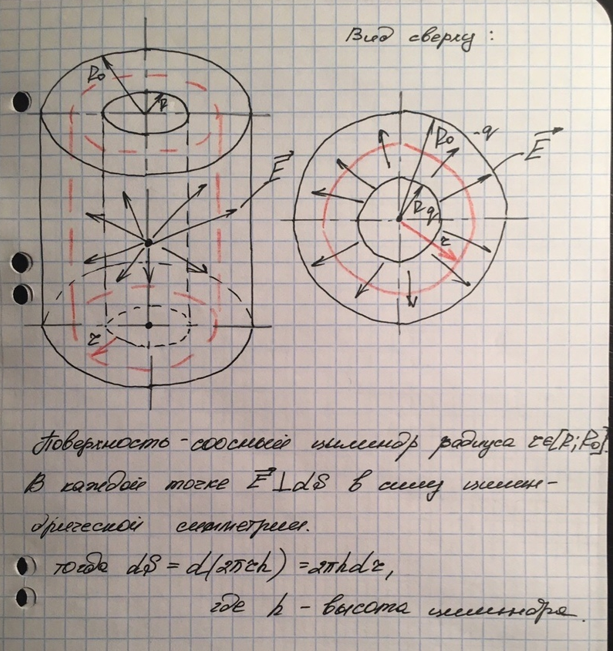 Вид сверху:
R₀
R
E
R₀
-q
E
R
q
r
r
Поверхность - соосный цилиндр радиуса r∈[R; R₀].
В каждой точке E⊥dS в силу цилин-
дрической симметрии.
тогда dS = d(2πrh) = 2πhdr,
где h - высота цилиндра.